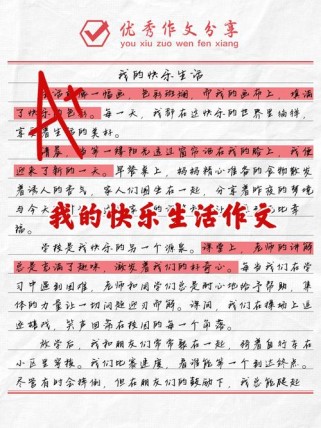 优秀作文分享
you xiu zuo wen fen xiang
我的快乐生活
A+
生活是一幅画，色彩斑斓，而我的画布上，堆满
了快乐的色彩。每一天，我都在这快乐的世界里徜徉，
享受着生活的美好。
清晨，当第一缕阳光透过窗帘洒在我的脸上，我便
迎来了新的一天。早餐桌上，妈妈精心准备的食物散发
着诱人的香气，家人们围坐在一起，分享着昨夜的梦境
与今天
我的快乐生活作文
福。
学校是我快乐的另一个源泉。课堂上，老师的讲解
总是充满了趣味，激发着我们的好奇心。每当我们在学
习中遇到困难，老师和同学们总是耐心地给予帮助，集
体的力量让一切问题迎刃而解。课间，我们在操场上追
逐嬉戏，笑声回荡在校园的每一个角落。
放学后，我和朋友们常常聚在一起，骑着自行车在
小区里穿梭。我们比赛速度，看谁能第一个到达终点。
尽管有时会摔倒，但在朋友们的鼓励下，我总能爬起